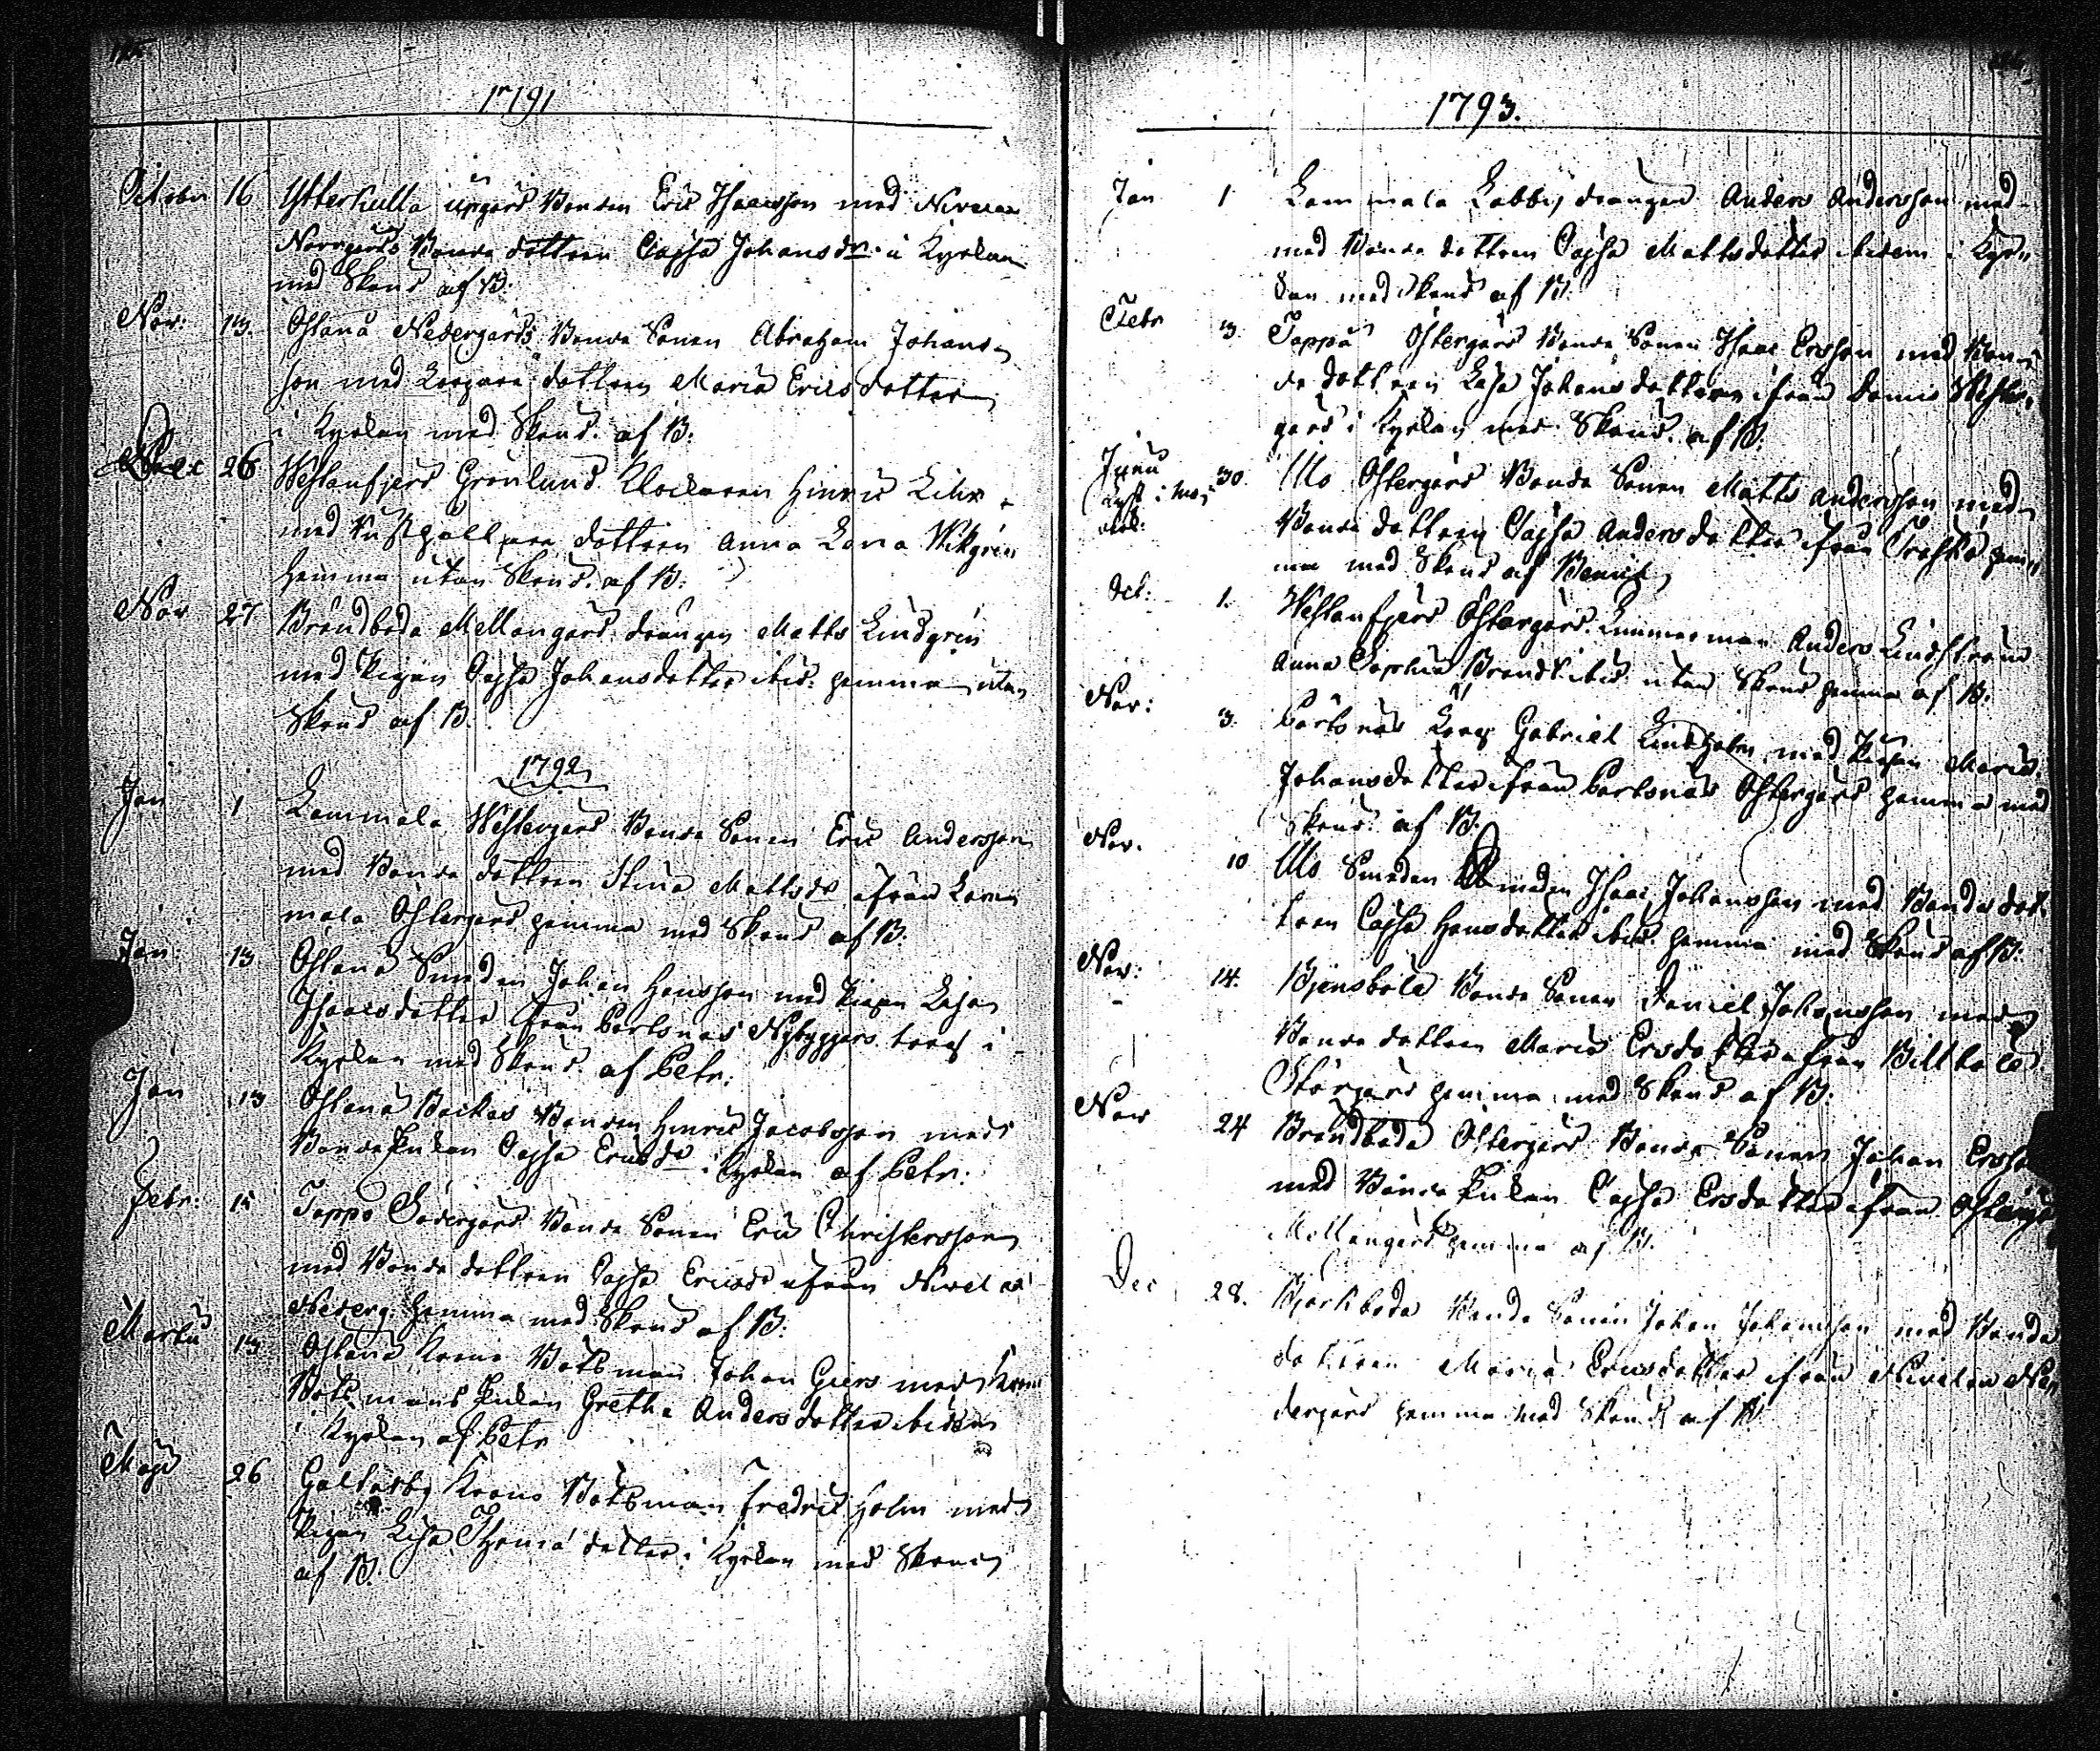 1791
October 16 Ytterkulla ungars Bonden Eric Isaacsson med Nivelax
Norrgårds Bonde dottren Cajsa Johansdr. i Kyrkan
med Skrud af B.
Nov: 13. Ölana Nedergårds Bonde Sonen Abraham Johans
son med dottren Maria Ericsdotter
i Kyrkan med Skrud. af B.
26 Westanfjerd Grönlund Klockaren Hinric Lihr
med Rusthållare dottren Anna Lovisa Wikgren
hemma utan Skrud. af B:
Nov 27. Brändboda Mellangård drängen Matts Lindgrén
med Pigan Cajsa Johansdotter ibid. hemma utan
Skrud af B.
1792
Jan 1 Lammala Westergård Bonde Sonen Eric Andersson
med Bonde dottren Stina Mattsdr ifrån Lam
mala Östergård hemma med Skrud af B.
Jan: 13 Ölana Smeden Johan Hansson med Pigan Lisa
Isaacsdotter ifrån Pertsnäs Nybyggars torp i
Kyrkan med Skrud. af Petr:
Jan 13 Ölana Backas Bonden Hinric Jacobsson med
Bonde Enkan Cajsa Ericsdr i Kyrkan af Petr:
Febr: 15 Tappo Södergård Bonde Sonen Eric Christersson
med Bonde dottren Cajsa Ericsdr ifrån Nivelax
Nederg. hemma med Skrud af B:
Martii 13 Ölana Krono Båtsman Johan Giers med Krono
Båtsmans Enkan Gretha Andersdotter ibidem
i Kyrkan af Petr
Maji 26 Galtarby Krono Båtsman Fredric Holm med
Pigan Lisa Thomædotter i Kyrkan med Skrud
af B.
1793.
Jan 1 Lammala Labbas drängen Anders Andersson med
med Bonde dottren Cajsa Mattsdotter ibidem i Kyr
kan med Skrud af B.
Febr 3. Tappo Östergård Bonde Sonen Isaac Ersson med Bon
de dottren Lisa Johansdotter ifrån Wester
gård i Kyrkan med Skrud. af B.
Junii 30. Mo Östergård Bonde Sonen Matts Andersson med
Bonde dottren Cajsa Andersdotter ifrån hem
ma med Skrud af
Oct: 1. Westanfjerd Östergård Timmerman Anders Lindström
Anna Sophia Brandt ibid utan Skrud hemma af B:
Nov: 3. Pertsnäs Torp. Gabriel Lindholm med Pigan Maria
Johansdotter ifrån Pertsnäs Östergård hemma med
Skrud. af B.
Nov. 10 Mo Smeden Isaac Johansson med Bonde dot
tren Cajsa Hansdotter ibid. hemma med Skrud af B:
Nov: 14. Björnsböle Bonde Sonen Daniel Johansson med
Bonde dottren Maria Ersdotter ifrån Billböle
Storgård hemma med Skrud af B:
Nov 24 Brändboda Östergård Bonde Sonen Johan Ersson
med Bonde Enkan Cajsa Ersdotter ifrån
Mellangård hemma af B.
Dec 28. Björkboda Bonde Sonen Johan Johansson med Bonde
dottren Maria Ericsdotter ifrån Nivelax Ne
dergård hemma med Skrud af B.